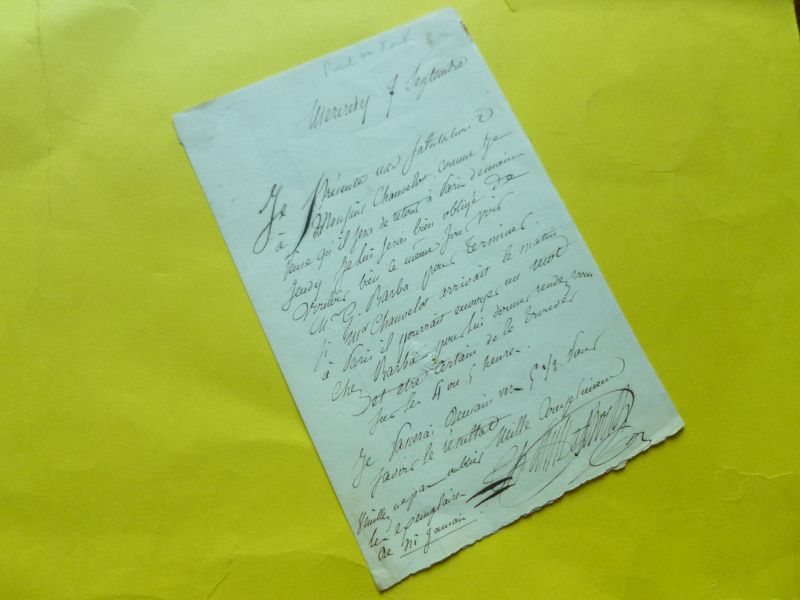 Paul de Kock
Mercredy 7 Septembre
Je Présente mes Salutations
à Monsieur Chauvelot, comme je
pense qu'il sera de retour à Paris demain
Jeudy je lui serai bien obligé de
vouloir bien ce même jour voir
Mr G. Barba pour terminer.
Si Mr Chauvelot arrivait le matin
à Paris il pourrait envoyer un mot
chez Barba pour lui donner rendez vous
et être certain de le trouver
sur les 4 ou 5 heures.
Je Passerai Demain vers 5 1/2 Pour
savoir le résultat
Mille Complimens
Ch Paul de Kock
Veuillez ne pas oublier
les exemplaires
de ni jamais.